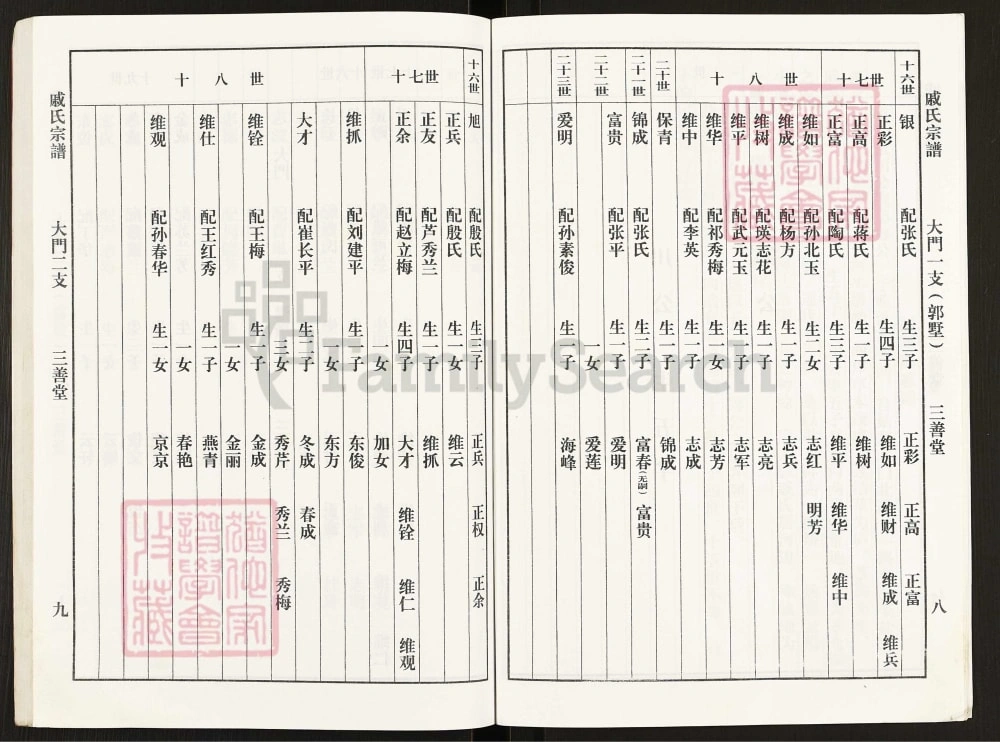 戚氏宗譜 大門一支(郭墅) 三善堂 八
十六世
银 配张氏 生三子 正彩 正高 正富
十七世
正彩 生四子 维如 维财 维成 维兵
正高 配蒋氏 生一子 维树
正富 配陶氏 生三子 维平 维华 维中
十八世
维如 配孙北玉 生二女 志红 明芳
维成 配杨方 生一子 志兵
维树 配瑛志花 生一子 志亮
维平 配武元玉 生一子 志军
维华 配祁秀梅 生一女 志芳
维中 配李英 生一子 志成
二十世
保青 生一子 锦成
二十一世
锦成 配张氏 生二子 富春(无嗣) 富贵
二十二世
富贵 配张平 生一子 爱明
一女 爱莲
二十三世
爱明 配孙素俊 生一子 海峰
戚氏宗譜 大門二支 三善堂 九
十六世
旭 配殷氏 生三子 正兵 正权 正余
十七世
正兵 配殷氏 生一女 维云
正友 配芦秀兰 生一子 维抓
正余 配赵立梅 生四子 大才 维铨 维仁 维观
一女 加女
十八世
维抓 配刘建平 生一子 东俊
一女 东方
大才 配崔长平 生二子 冬成 春成
三女 秀芹 秀兰 秀梅
维铨 配王梅 生一子 金成
一女 金丽
维仕 配王红秀 生一子 燕青
一女 春艳
维观 配孙春华 生一女 京京
FamilySearch